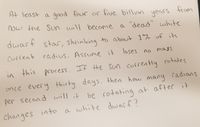 At least a good four or five billion years from
now the Sun will become a "dead" white
dwarf star, shrinking to about 1% of its
current radius. Assume it loses no mass
in this process. If the Sun currently rotates
once every thirty days then how many radians
per second will it be rotating at after it
changes into a white dwarf?